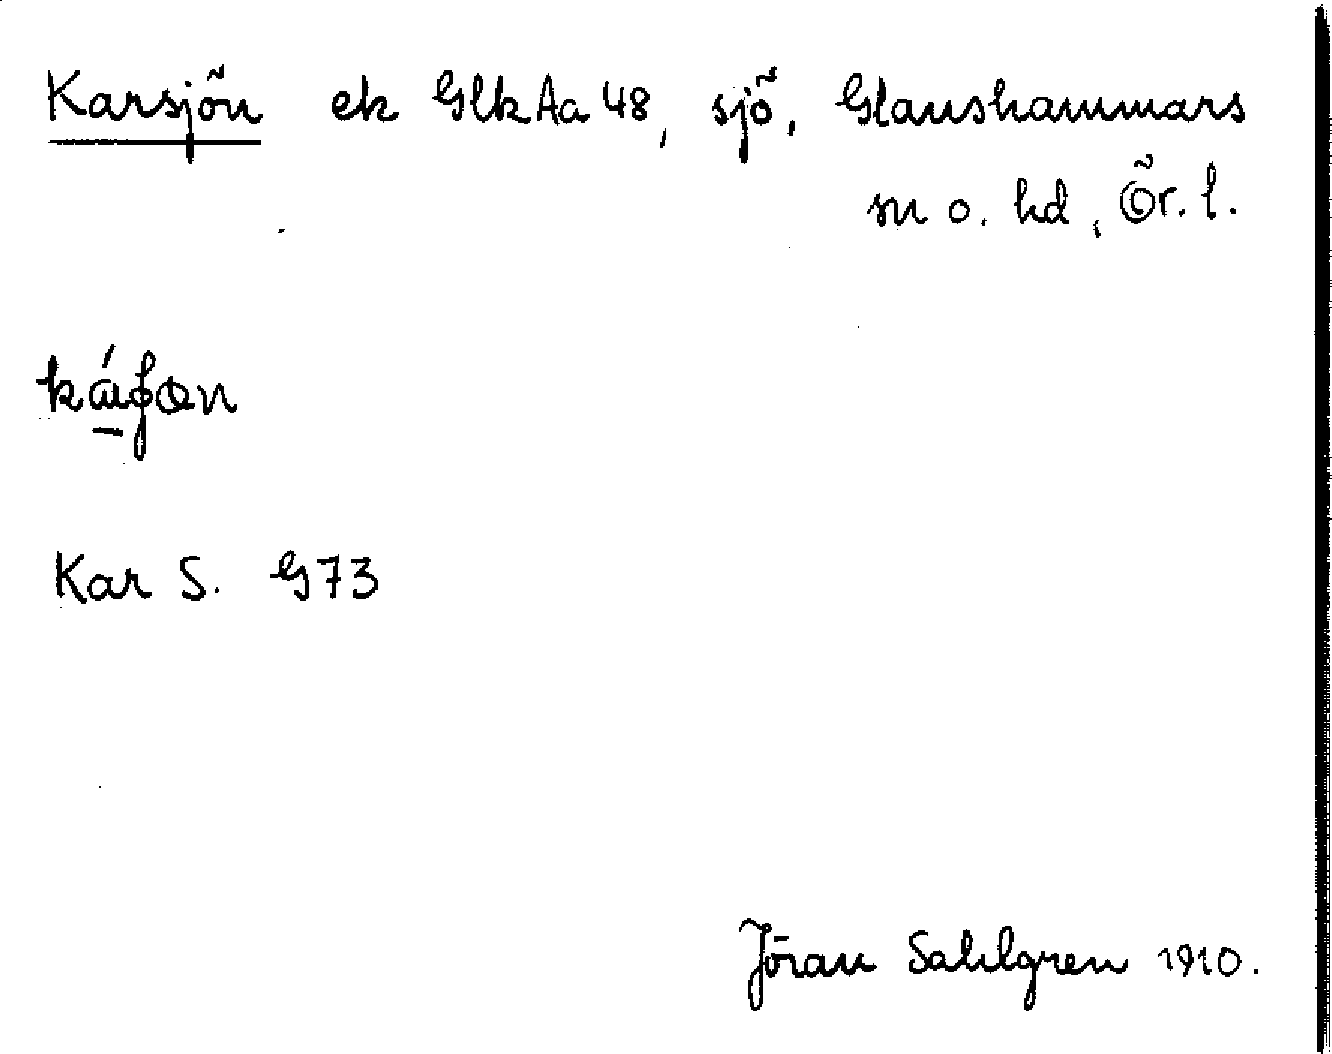 Karsjön ek GlkAa 48, sjö, Glanshammars
sn o. hd, Ör. l.
Kar S. G73
Jöran Sahlgren 1910.